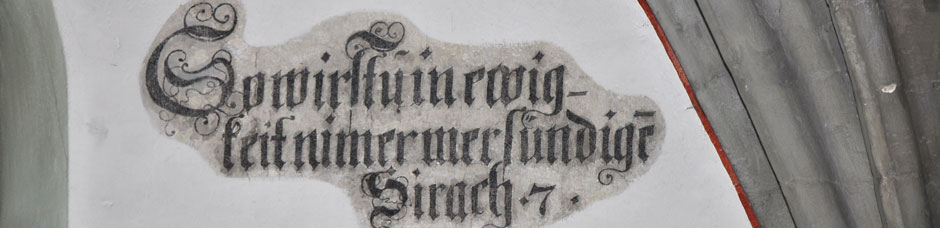 So wirstu in ewig-
keit nimer mer sündigē
Sirach .7.